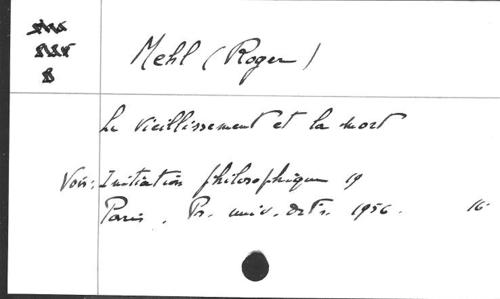 Mehl (Roger)
Le vieillissement et la mort
Voir: Initiation philosophique 19
Paris, Pr. univ. de Fr. 1956. 16